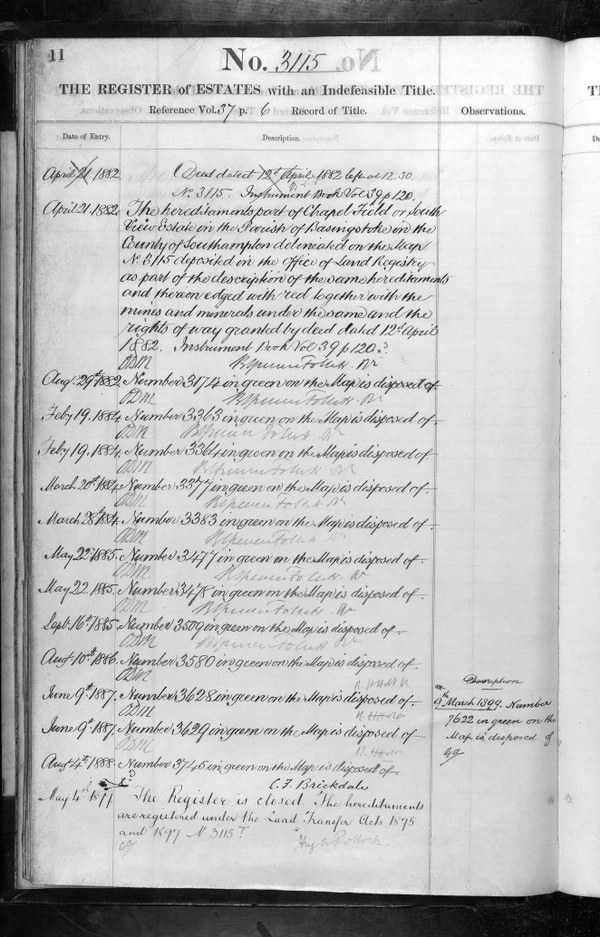 11
No. 3115
THE REGISTER of ESTATES with an Indefeasible Title.
Reference Vol. 37 p. 6 Record of Title.
Observations.
Date of Entry.
Description.
April 21 1882 Deed dated 12th April 1882 left at 12.30
No 3115. Instrument Book Vol 39 p 120.
April 21. 1882. The hereditaments part of Chapel Field or South
View Estate in the Parish of Basingstoke in the
County of Southampton deliniated on the Map
No 3115 deposited in the Office of Land Registry
as part of the description of the same hereditaments
and thereon edged with red together with the
mines and minerals under the same and the
rights of way granted by deed dated 12th April
1882. Instrument Book Vol 39 p 120.
Aug. 29th 1882 Number 3174 in green on the Map is disposed of.
Feby 19. 1884. Number 3363 in green on the Map is disposed of.
Feby 19. 1884. Number 3364 in green on the Map is disposed of
March 20th 1884. Number 3377 in green on the Map is disposed of.
March 28th 1884. Number 3383 in green on the Map is disposed of
May 22nd 1885. Number 3477 in green on the Map is disposed of
May 22. 1885. Number 3478 in green on the Map is disposed of.
Sept. 16th 1885. Number 3509 in green on the Map is disposed of.
Augt 10th 1886. Number 3580 in green on the Map is disposed of.
June 9th 1887. Number 3628 in green on the Map is disposed of.
June 9th 1887. Number 3629 in green on the Map is disposed of
Augt 4th 1888. Number 3745 in green on the Map is disposed of.
C. F. Brickdale
May 4th The Register is closed. The hereditaments
are registered under the Land Transfer Acts 1875
and 1897 No 3115T.
Hugh Pollock
Description
March 1899. Number
7622 in green on the
Map is disposed of